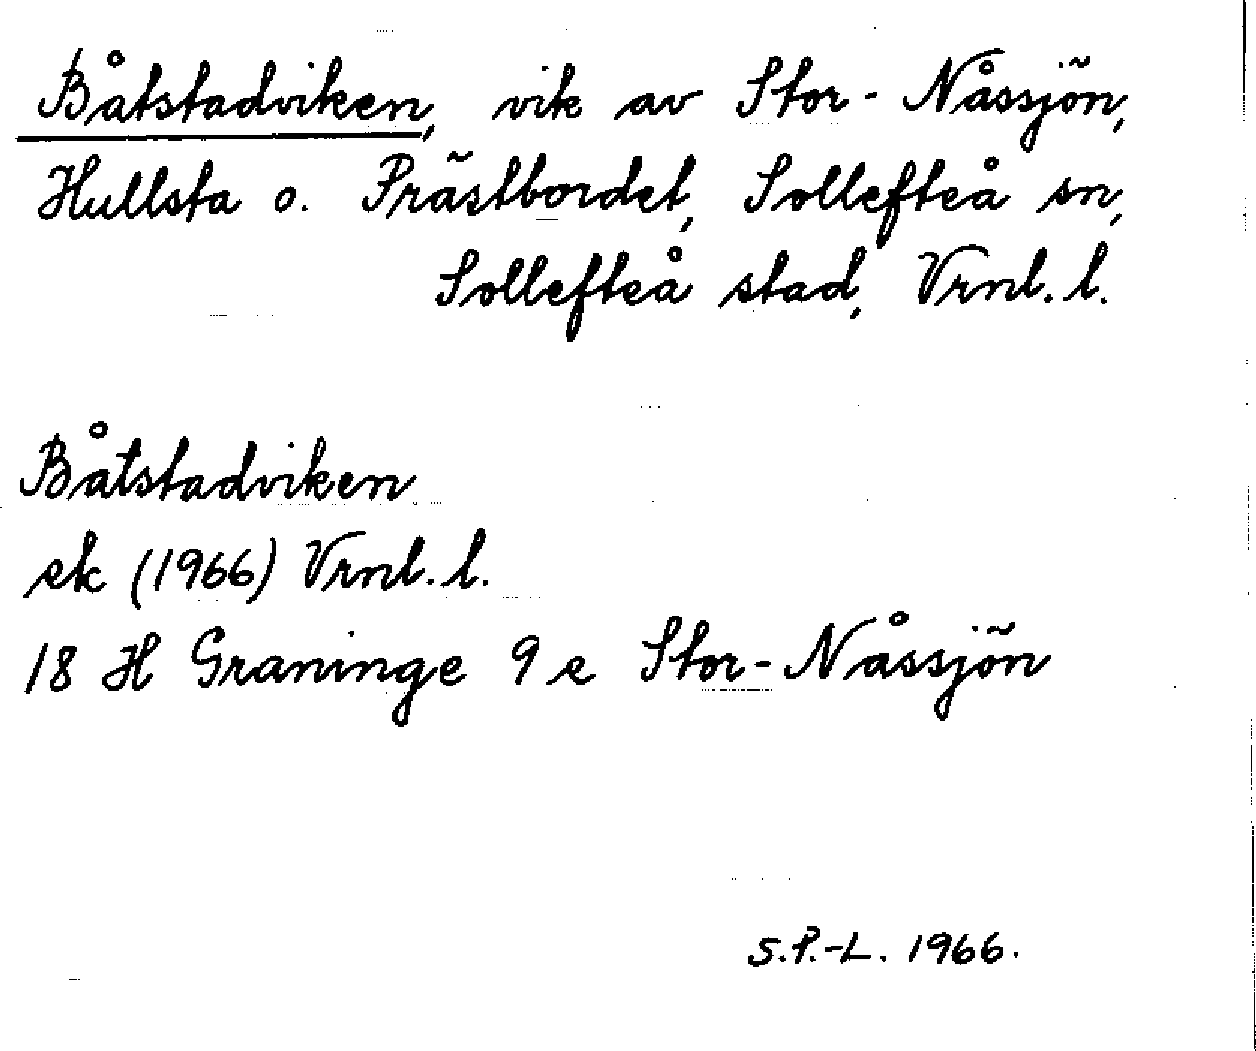 Båtstadviken, vik av Stor-Nåssjön,
Hullsta o. Prästbordet, Sollefteå sn,
Sollefteå stad, Vrnl. l.
Båtstadviken
ek (1966) Vrnl. l.
18 H Graninge 9 e Stor-Nåssjön
S.P.-L. 1966.